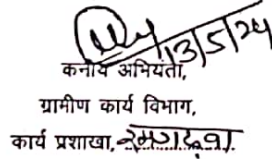 13/5/24
कनीय अभियंता,
ग्रामीण कार्य विभाग,
कार्य प्रशाखा,